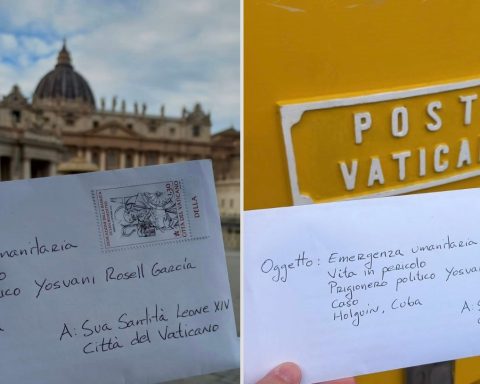 manitaria
o
ico Yosvani Rosell García
A: Sua Santità Leone XIV
Città del Vaticano
DELLA
POST
VATICA
Oggetto: Emergenza umanitaria
Vita in pericolo
Prigionero politico Yosvani
Caso
Holguin, Cuba
A: S